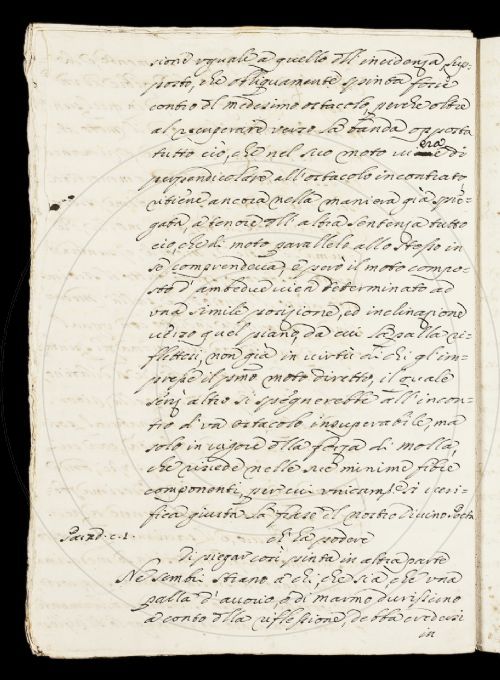 sione uguale a quello dll' incidenza, sup-
posto, che obliquamente spinta fosse
contro il medesimo ostacolo, perche oltre
al recuperare verso la banda opposta
tutto ciò, che nel suo moto era di
perpendicolare all' ostacolo incontrato
ritiene ancora nella maniera già spie-
gata, a tenore dll' altra sentenza tutto
ciò, che di moto parallelo allo stesso in
se comprendeva, e però il moto compo-
sto d' ambedue vien determinato ad
una simile posizione, ed inclinazione
verso quel piano, da cui la palla ri-
flettesi, non già in virtù di chi gl' im-
presse il pmo moto diretto, il quale
senz altro si spegnerebbe all' incon-
tro d' un ostacolo insuperabile, ma
solo in vigore dlla forza di molla,
che risiede nelle sue minime fibre
componenti, per cui unicamte si veri-
fica giusta la frase del nostro Divino Poeta
Parad. c. 1.
ch' ha podere
Di piegar così pinta in altra parte
Ne sembri strano a chi che sia che una
palla d' avorio, o di marmo durissimo
a conto dlla riflessione, debba credersi
in